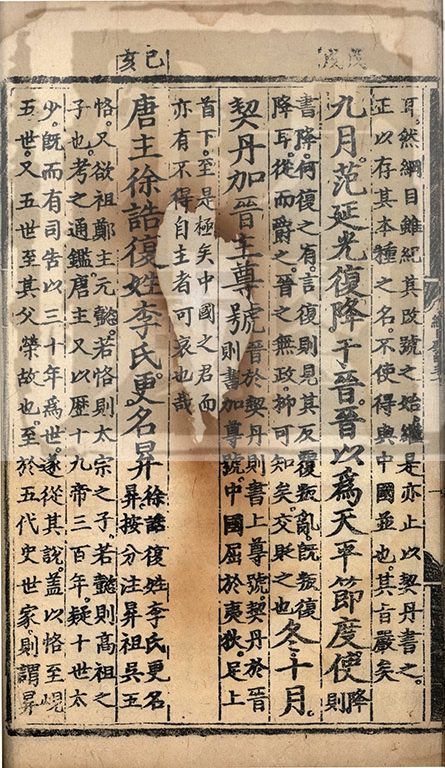 戊戌
己亥
耳然綱目雖紀其改號之始繼是亦止以契丹書之
正以存其本種之名不使得與中國並也其旨嚴矣
九月范延光復降于晉晉以為天平節度使降則
書降何復之有言復則見其反覆叛亂既叛復
降耳從而爵之晉之無政抑可知矣交貶之也
冬十月
契丹加晉主尊號
晉於契丹則書上尊號契丹於晉
則書加尊號中國屈於夷狄足上
首下至是極矣中國之君而
亦有不得自主者可哀也哉
唐主徐誥復姓李氏更名昪
徐誥復姓李氏更名
昪按分注昪祖吳五
恪又欲祖鄭王元懿若恪則太宗之子若懿則高祖之
子也考之通鑑唐主又以歷十九帝三百年疑十世太
少既而有司告以三十年為世遂從其說蓋以恪至峴
五世又五世至其父榮故也至於五代史世家則謂昪